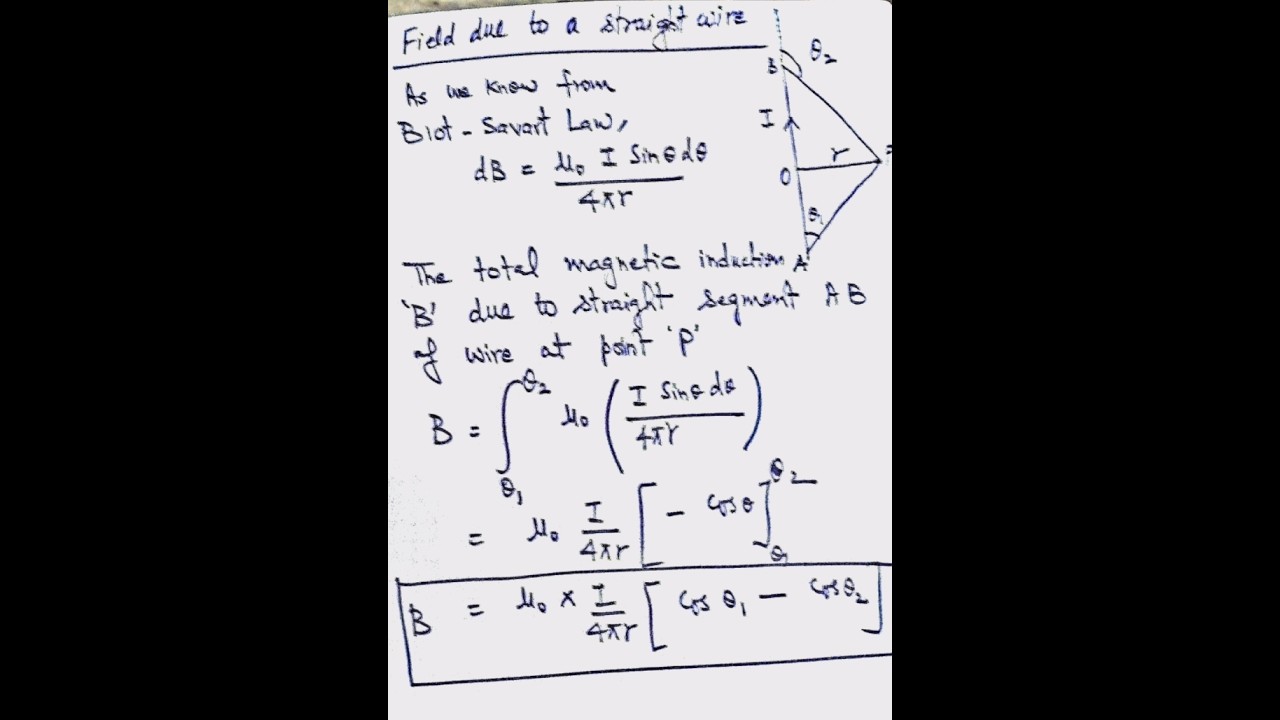 Field due to a straight wire
θ₂
B
As we know from
I
Biot - Savart Law,
dB = μ₀ I Sinθ dθ
4πr
r
O
θ₁
The total magnetic induction
A
'B' due to straight segment AB
of wire at point 'P'
B = ∫θ₁^θ₂ μ₀ ( I Sinθ dθ / 4πr )
= μ₀ I / 4πr [ - Cosθ ]θ₁^θ₂
B = μ₀ × I / 4πr [ Cos θ₁ - Cosθ₂ ]